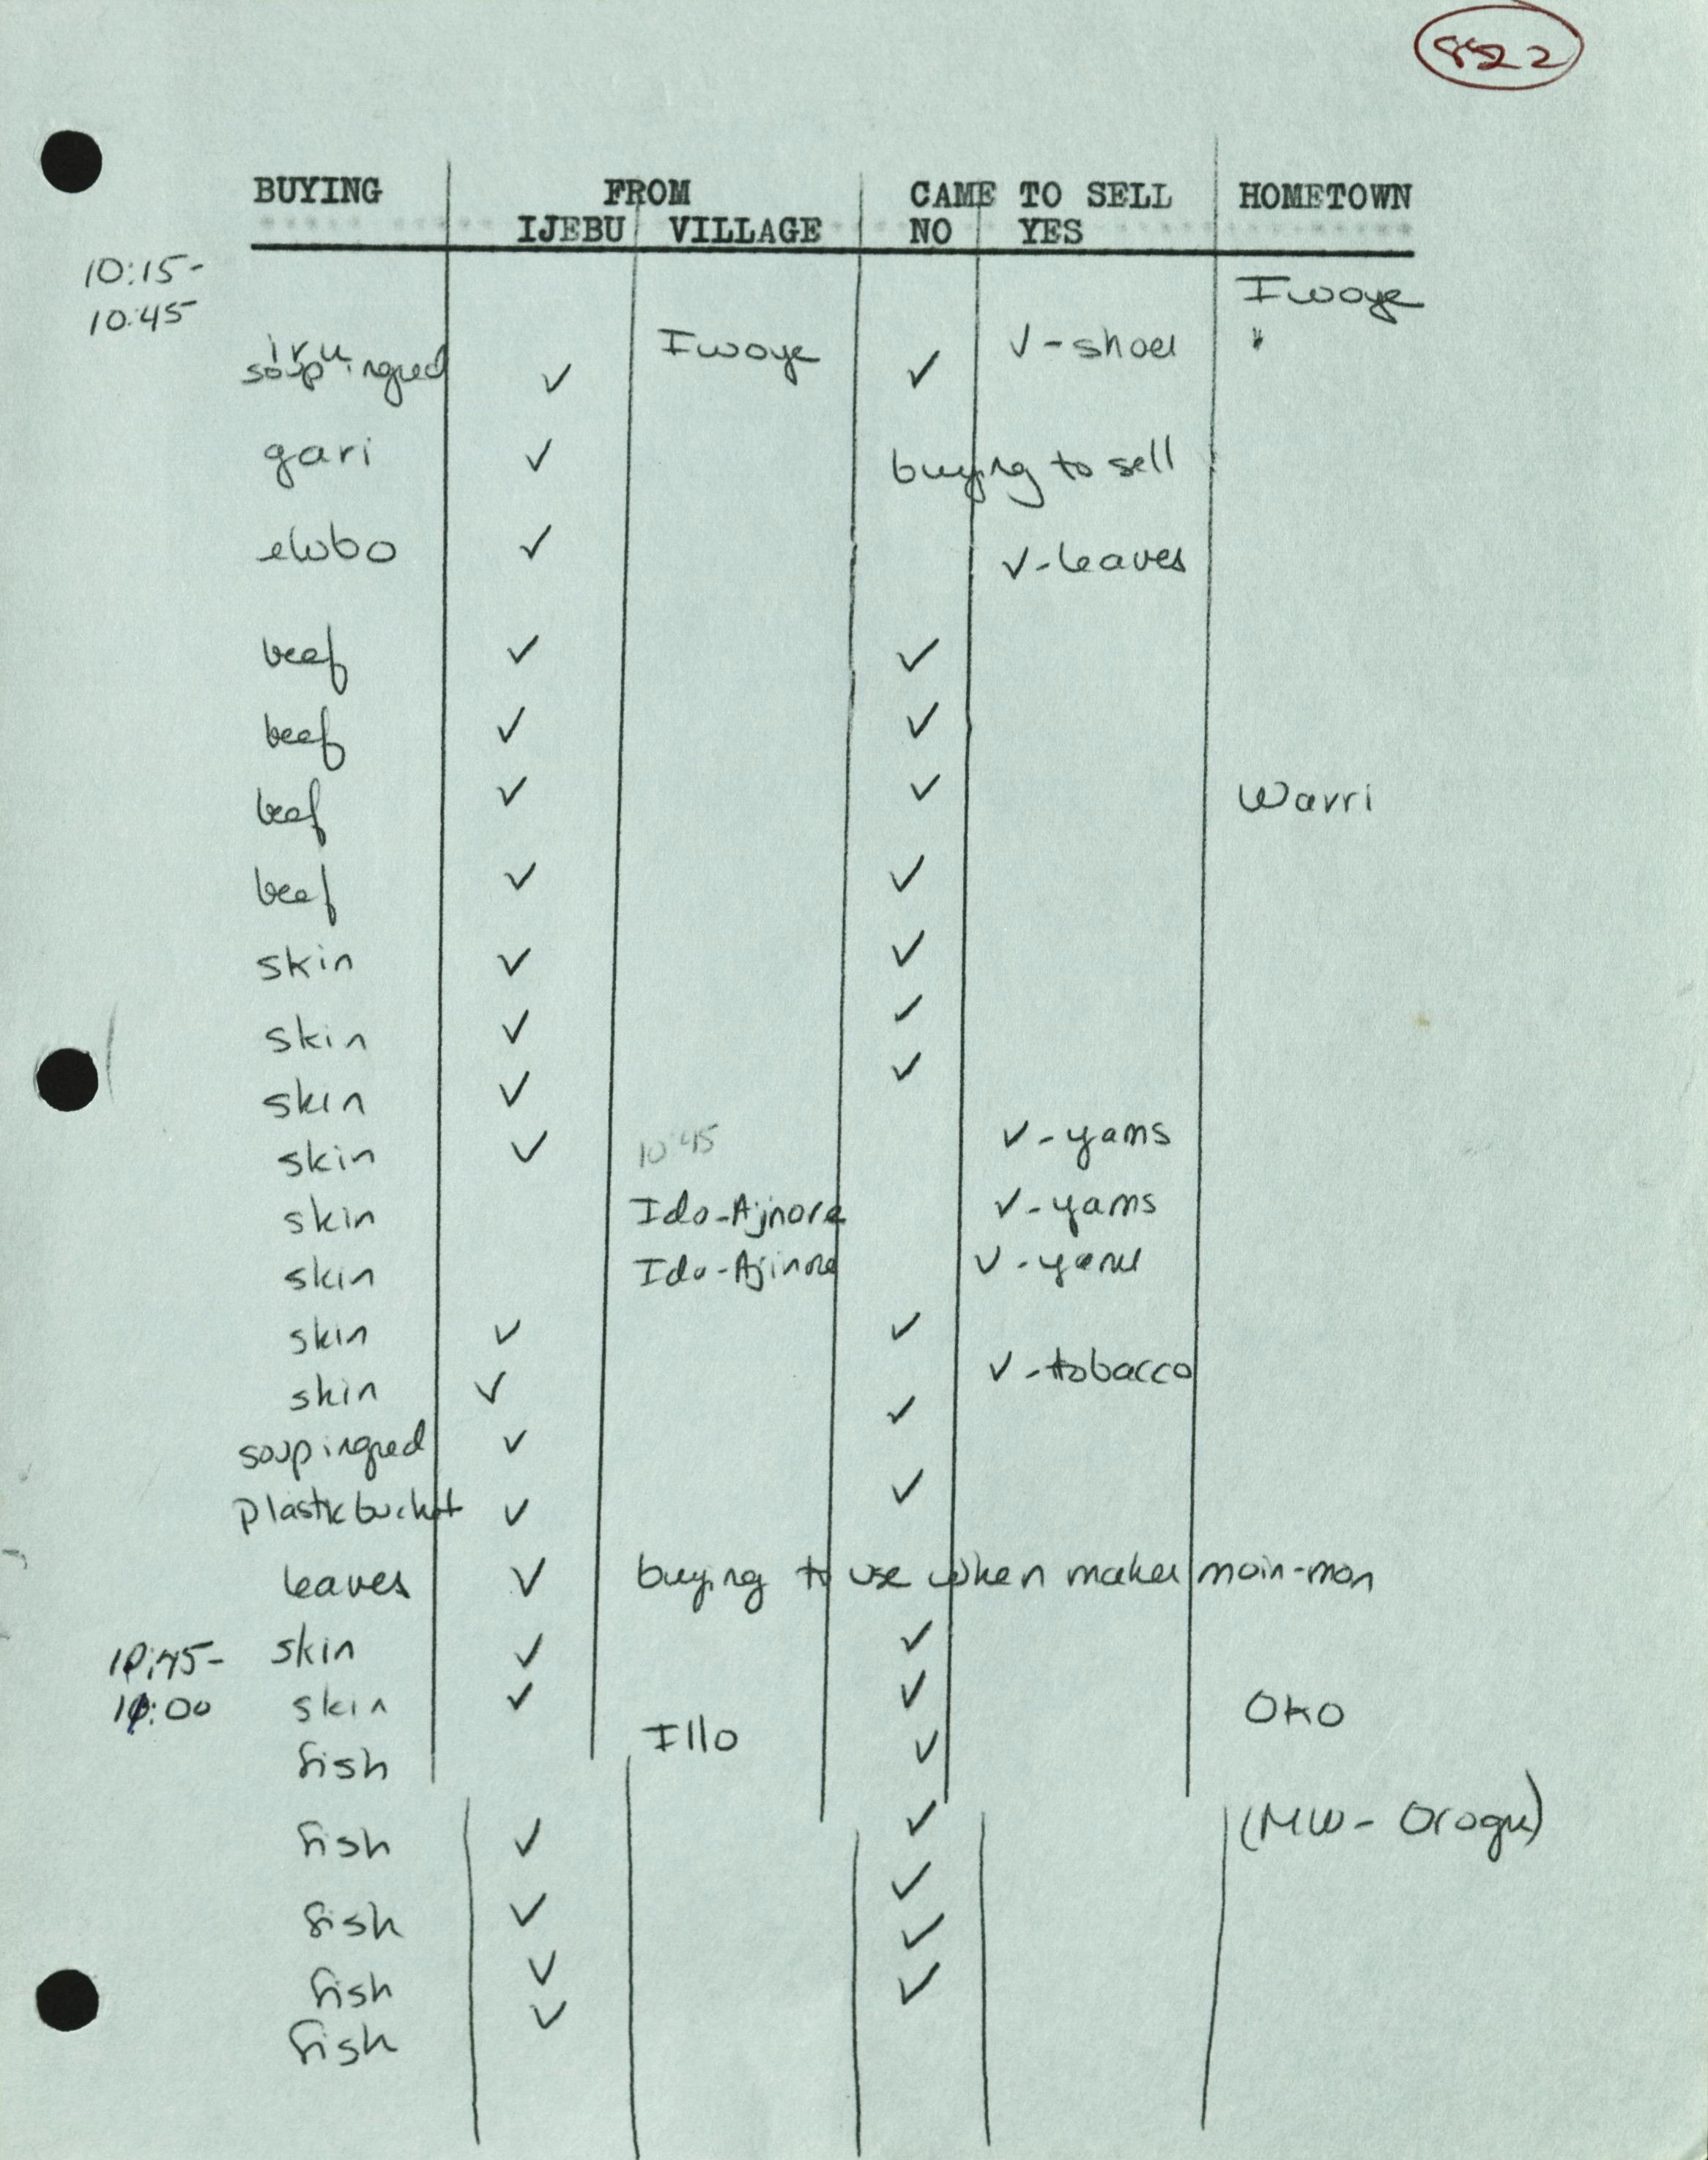 BUYING FROM CAME TO SELL HOMETOWN
IJEBU VILLAGE NO YES
10:15-
10:45
Iwoye
iru Iwoye ✓-shoes "
soup ingred ✓ ✓
gari ✓ buying to sell
elubo ✓ ✓-leaves
beef ✓ ✓
beef ✓ ✓
beef ✓ ✓ Warri
beef ✓ ✓
skin ✓ ✓
skin ✓ ✓
skin ✓ ✓
skin ✓ 10:45 ✓-yams
skin Ido-Ajinore ✓-yams
skin Ido-Ajinore ✓-yams
skin ✓ ✓
skin ✓ ✓-tobacco
soup ingred ✓ ✓
plastic bucket ✓ ✓
leaves ✓ buying to use when makes moin-moin
10:45- skin ✓ ✓
11:00 skin ✓ ✓ Oko
fish Illo ✓
fish ✓ ✓ (MW- Orogu)
fish ✓ ✓
fish ✓ ✓
fish ✓ ✓